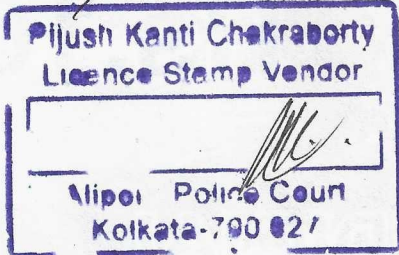 Pijush Kanti Chakraborty
Licence Stamp Vendor
Alipor Police Court
Kolkata-700 027